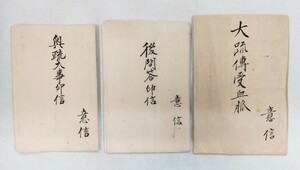 大疏傳受血脈
意信
後問答印信
意信
奥疏大事印信
意信